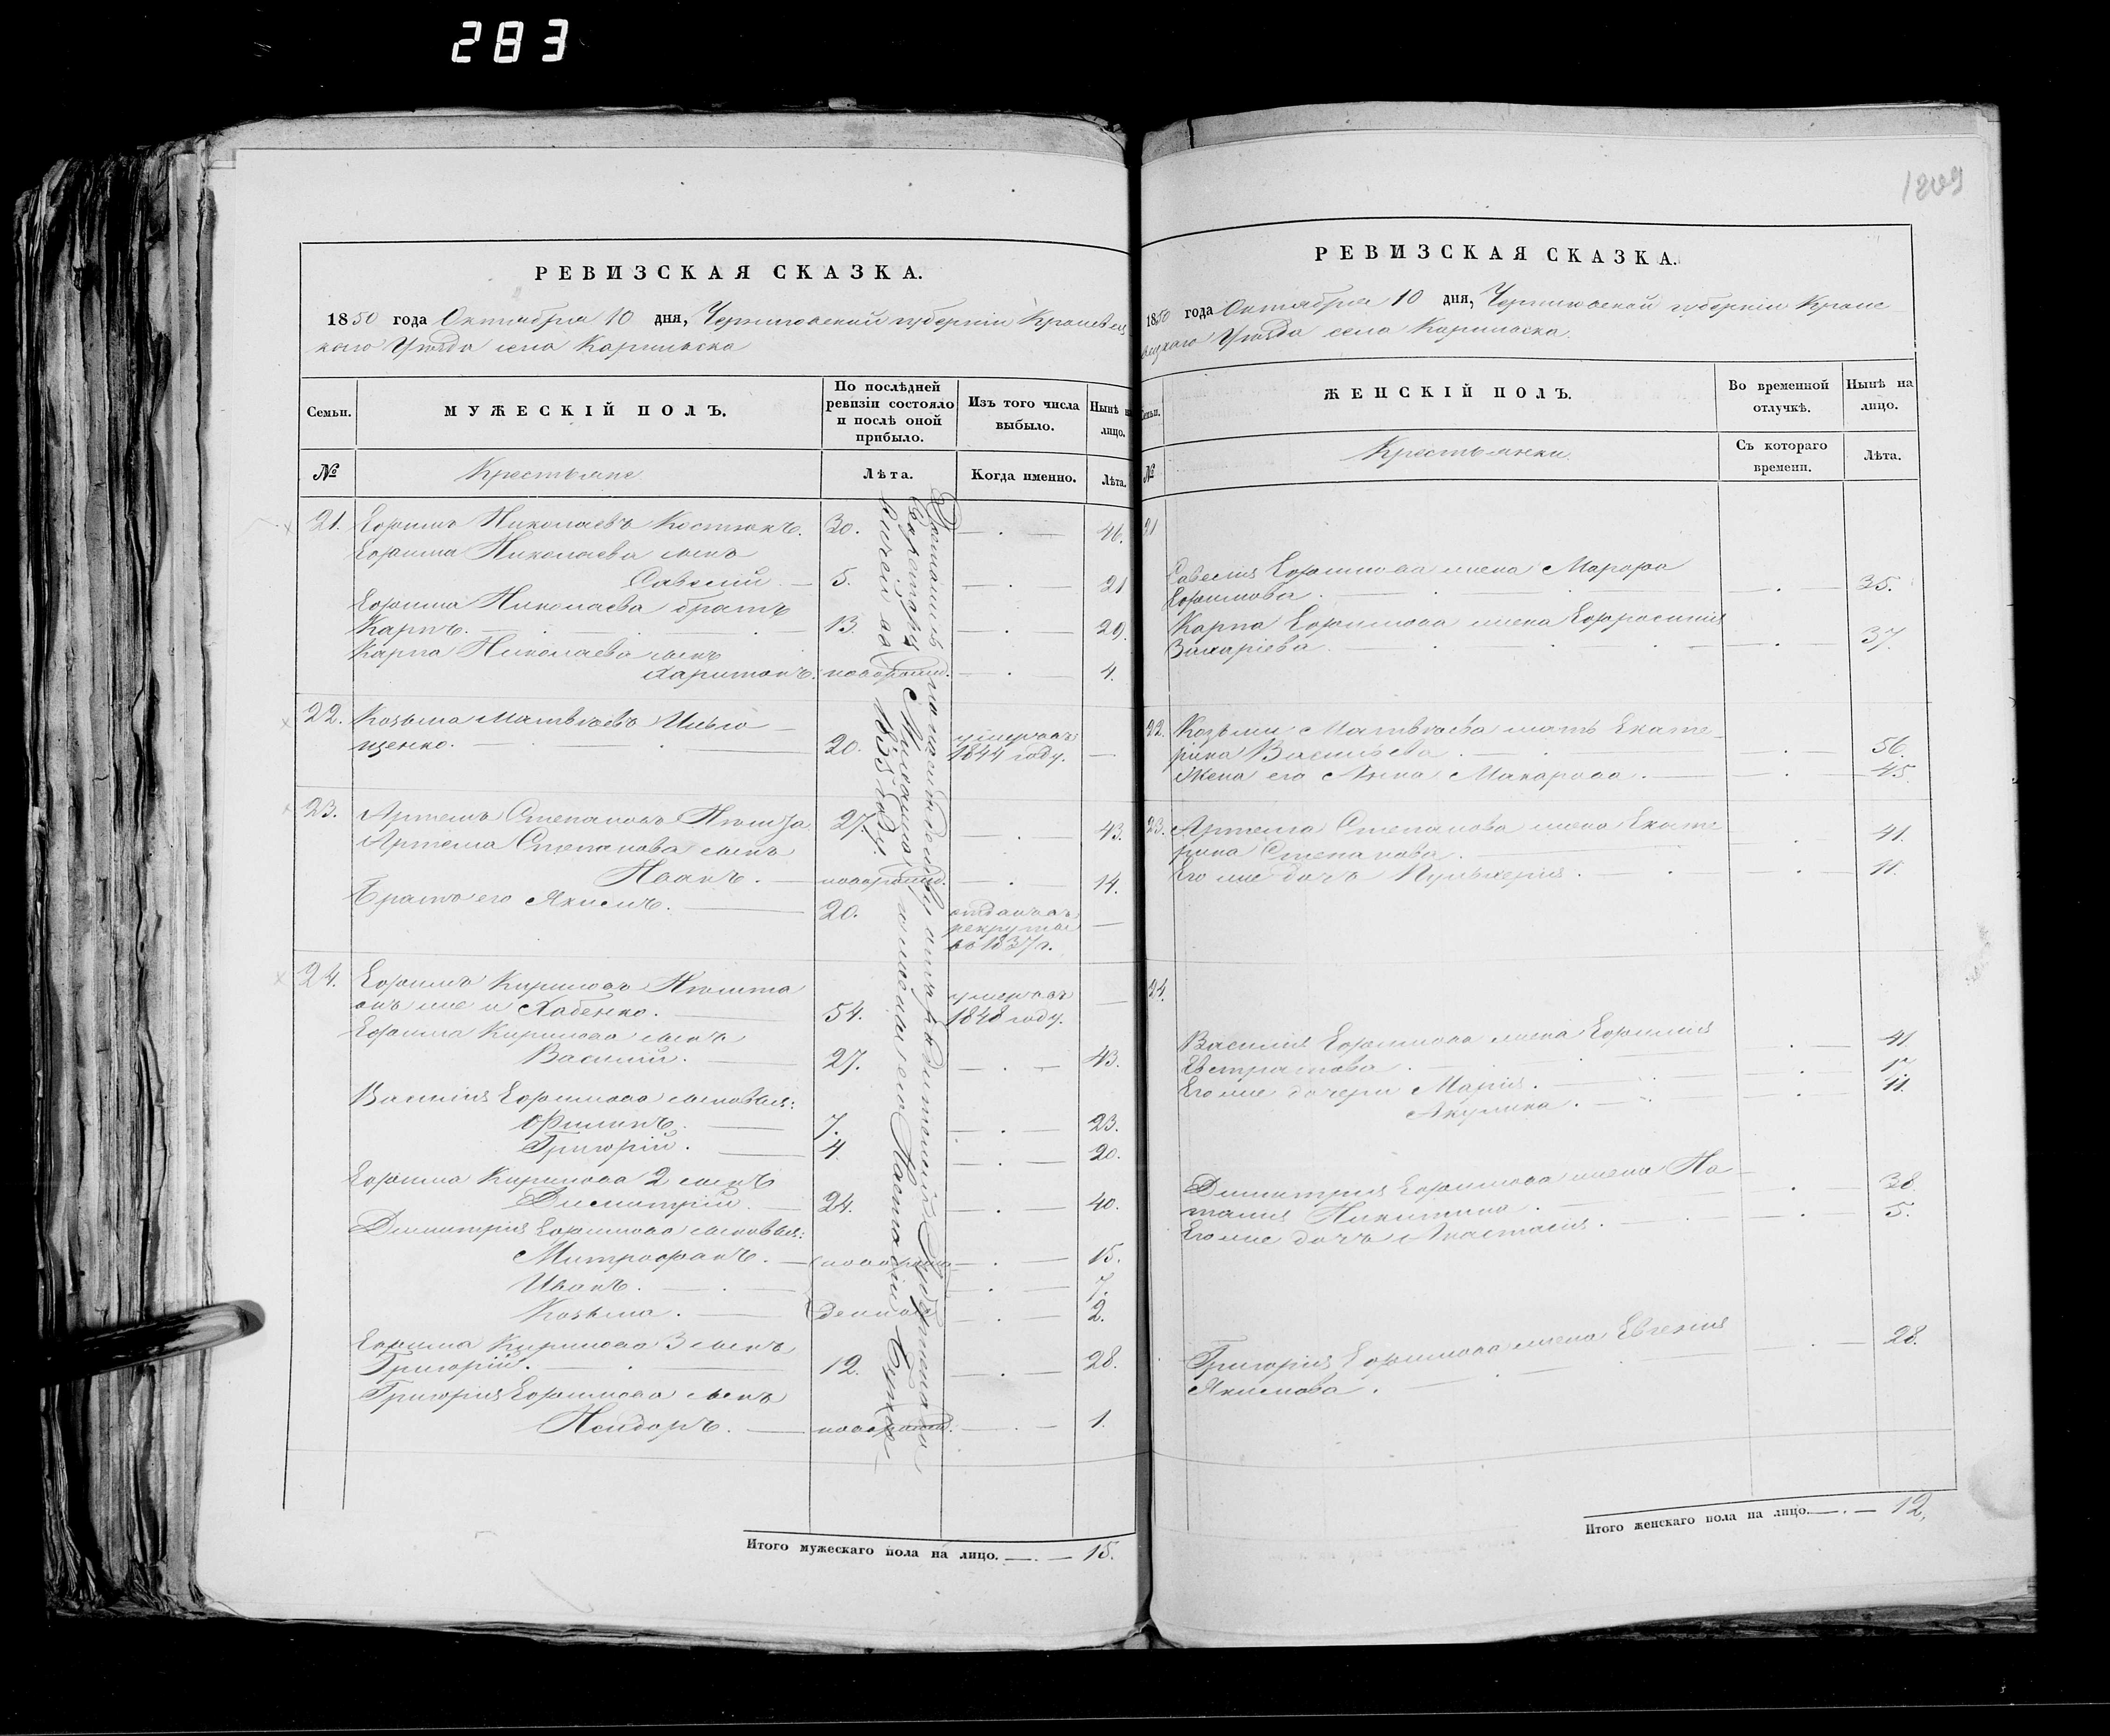 283
1809
РЕВИЗСКАЯ СКАЗКА.
1850 года Октября 10 дня, Черниговской губерніи Кролевец
каго Уѣзда села Карильска
Семьи.
МУЖЕСКІЙ ПОЛЪ.
По послѣдней
ревизіи состояло
и послѣ оной
прибыло.
Изъ того числа
выбыло.
Нынѣ на
лицо.
№
Крестьяне
Лѣта.
Когда именно.
Лѣта.
21. Ефимъ Николаевъ Костюкъ. 30. 46.
Ефима Николаева сынъ
Савелий 5. 21
Ефима Николаева братъ
Карпъ. 13. 29.
Карпа Николаева сынъ
Харитонъ. новорожд. 4.
22. Козьма Матвѣевъ
щенко. 20. умеръ въ 1844 году.
23. Артемъ Степановъ 27. 43.
Артема Степанова сынъ
Иванъ. новорожд. 14.
Братъ его Якимъ. 20. отданъ въ
рекруты
въ 1837 г.
24. Ефимъ Кириловъ
онъ же и Хабенко. 54. умеръ въ 1848 году.
Ефима Кирилова сынъ
Василий. 27. 43.
Василия Ефимова сыновья:
Филипъ. 7. 23.
Григорій. 4. 20.
Ефима Кирилова 2 сынъ
Димитрий. 24. 40.
Димитрия Ефимова сыновья:
Митрофанъ. новорож 15.
Иванъ. 7.
Козьма. денные 2.
Ефима Кирилова 3 сынъ
Григорій. 12. 28.
Григория Ефимова сынъ
Исидоръ. новорожд. 1.
Итого мужескаго пола на лицо. 15.
РЕВИЗСКАЯ СКАЗКА.
1850 года Октября 10 дня, Черниговской губерніи Кроле
вецкаго Уѣзда села Карильска.
Семьи.
ЖЕНСКІЙ ПОЛЪ.
Во временной
отлучкѣ.
Нынѣ на
лицо.
№
Крестьянки
Съ котораго
времени.
Лѣта.
21
Савелия Ефимова жена Марфа
Ефимова. 35.
Карпа Ефимова жена Ефросиния
Захаріева. 37.
22. Козьми Матвѣева мать Екате
рина Васильева 56.
Жена его Анна Макарова. 45.
23. Артема Степанова жена Екате
рина Степанова. 41.
Его же дочь Пульхерия. 11.
24.
Василия Ефимова жена Ефимия
Евстратова. 41.
Его же дочери Мария. 17.
Акулина. 11.
Димитрия Ефимова жена На
талия Никитина. 38.
Его же дочь Анастасия. 5.
Григория Ефимова жена Евгения
Якимова. 28.
Итого женскаго пола на лицо. 12.